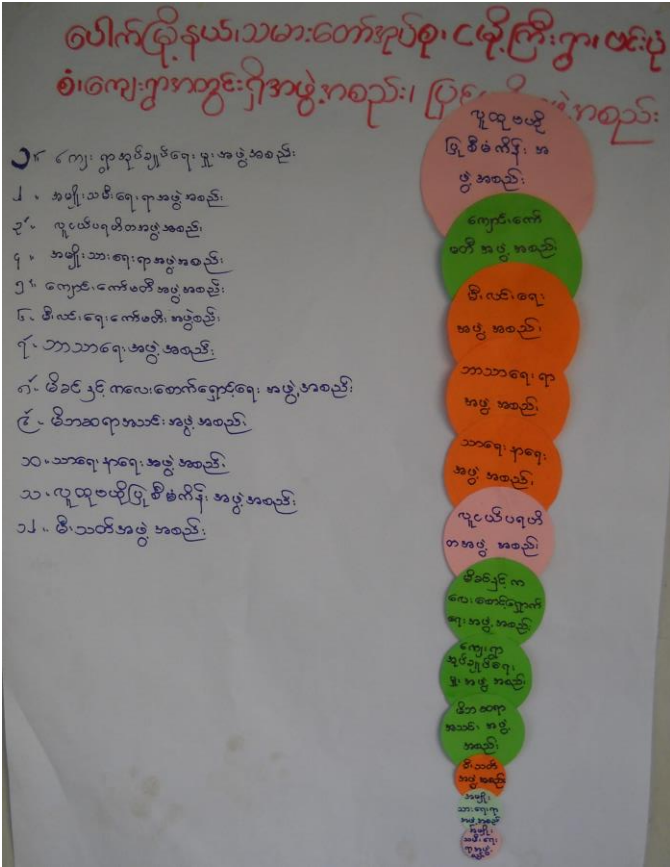 ပေါက်မြို့နယ်၊သမားတော်အုပ်စု၊ငမို့ကြီးရွာ၊ဗင်းပုံ
စံ၊ကျေးရွာအတွင်းရှိအဖွဲ့အစည်း၊ ပြင်ပ အဖွဲ့အစည်း
၁။ ကျေးရွာအုပ်ချုပ်ရေးမှူးအဖွဲ့အစည်း
၂။ အမျိုးသမီးရေးရာအဖွဲ့အစည်း
၃။ လူငယ်ပရဟိတအဖွဲ့အစည်း
၄။ အမျိုးသားရေးရာအဖွဲ့အစည်း
၅။ ကျောင်းကော်မတီအဖွဲ့အစည်း
၆။ မီးလင်းရေးကော်မတီအဖွဲ့စည်း
၇။ ဘာသာရေးအဖွဲ့အစည်း
၈။ မိခင်နှင့်ကလေးစောက်ရှောင့်ရေး အဖွဲ့အစည်း
၉။ မိဘဆရာအသင်းအဖွဲ့အစည်း
၁၀။သာရေးနာရေးအဖွဲ့အစည်း
၁၁။လူထုဗဟိုပြုစီမံကိန်းအဖွဲ့အစည်း
၁၂။ မီးသတ်အဖွဲ့အစည်း
လူထုဗဟို
ပြုစီမံကိန်း အ
ဖွဲ့အစည်း
ကျောင်းကော်
မတီအဖွဲ့အစည်း
မီးလင်းရေး
အဖွဲ့အစည်း
ဘာသာရေးရာ
အဖွဲ့အစည်း
သာရေးနာရေး
အဖွဲ့အစည်း
လူငယ်ပရဟိ
တအဖွဲ့အစည်း
မိခင်နှင့်က
လေးစောင့်ရှောက်
ရေးအဖွဲ့အစည်း
ကျေးရွာ
အုပ်ချုပ်ရေး
မှူးအဖွဲ့အစည်း
မိဘဆရာ
အသင်းအဖွဲ့
အစည်း
မီးသတ်
အဖွဲ့အစည်း
အမျိုး
သားရေးရာ
အဖွဲ့အစည်း
အမျိုး
သမီးရေး